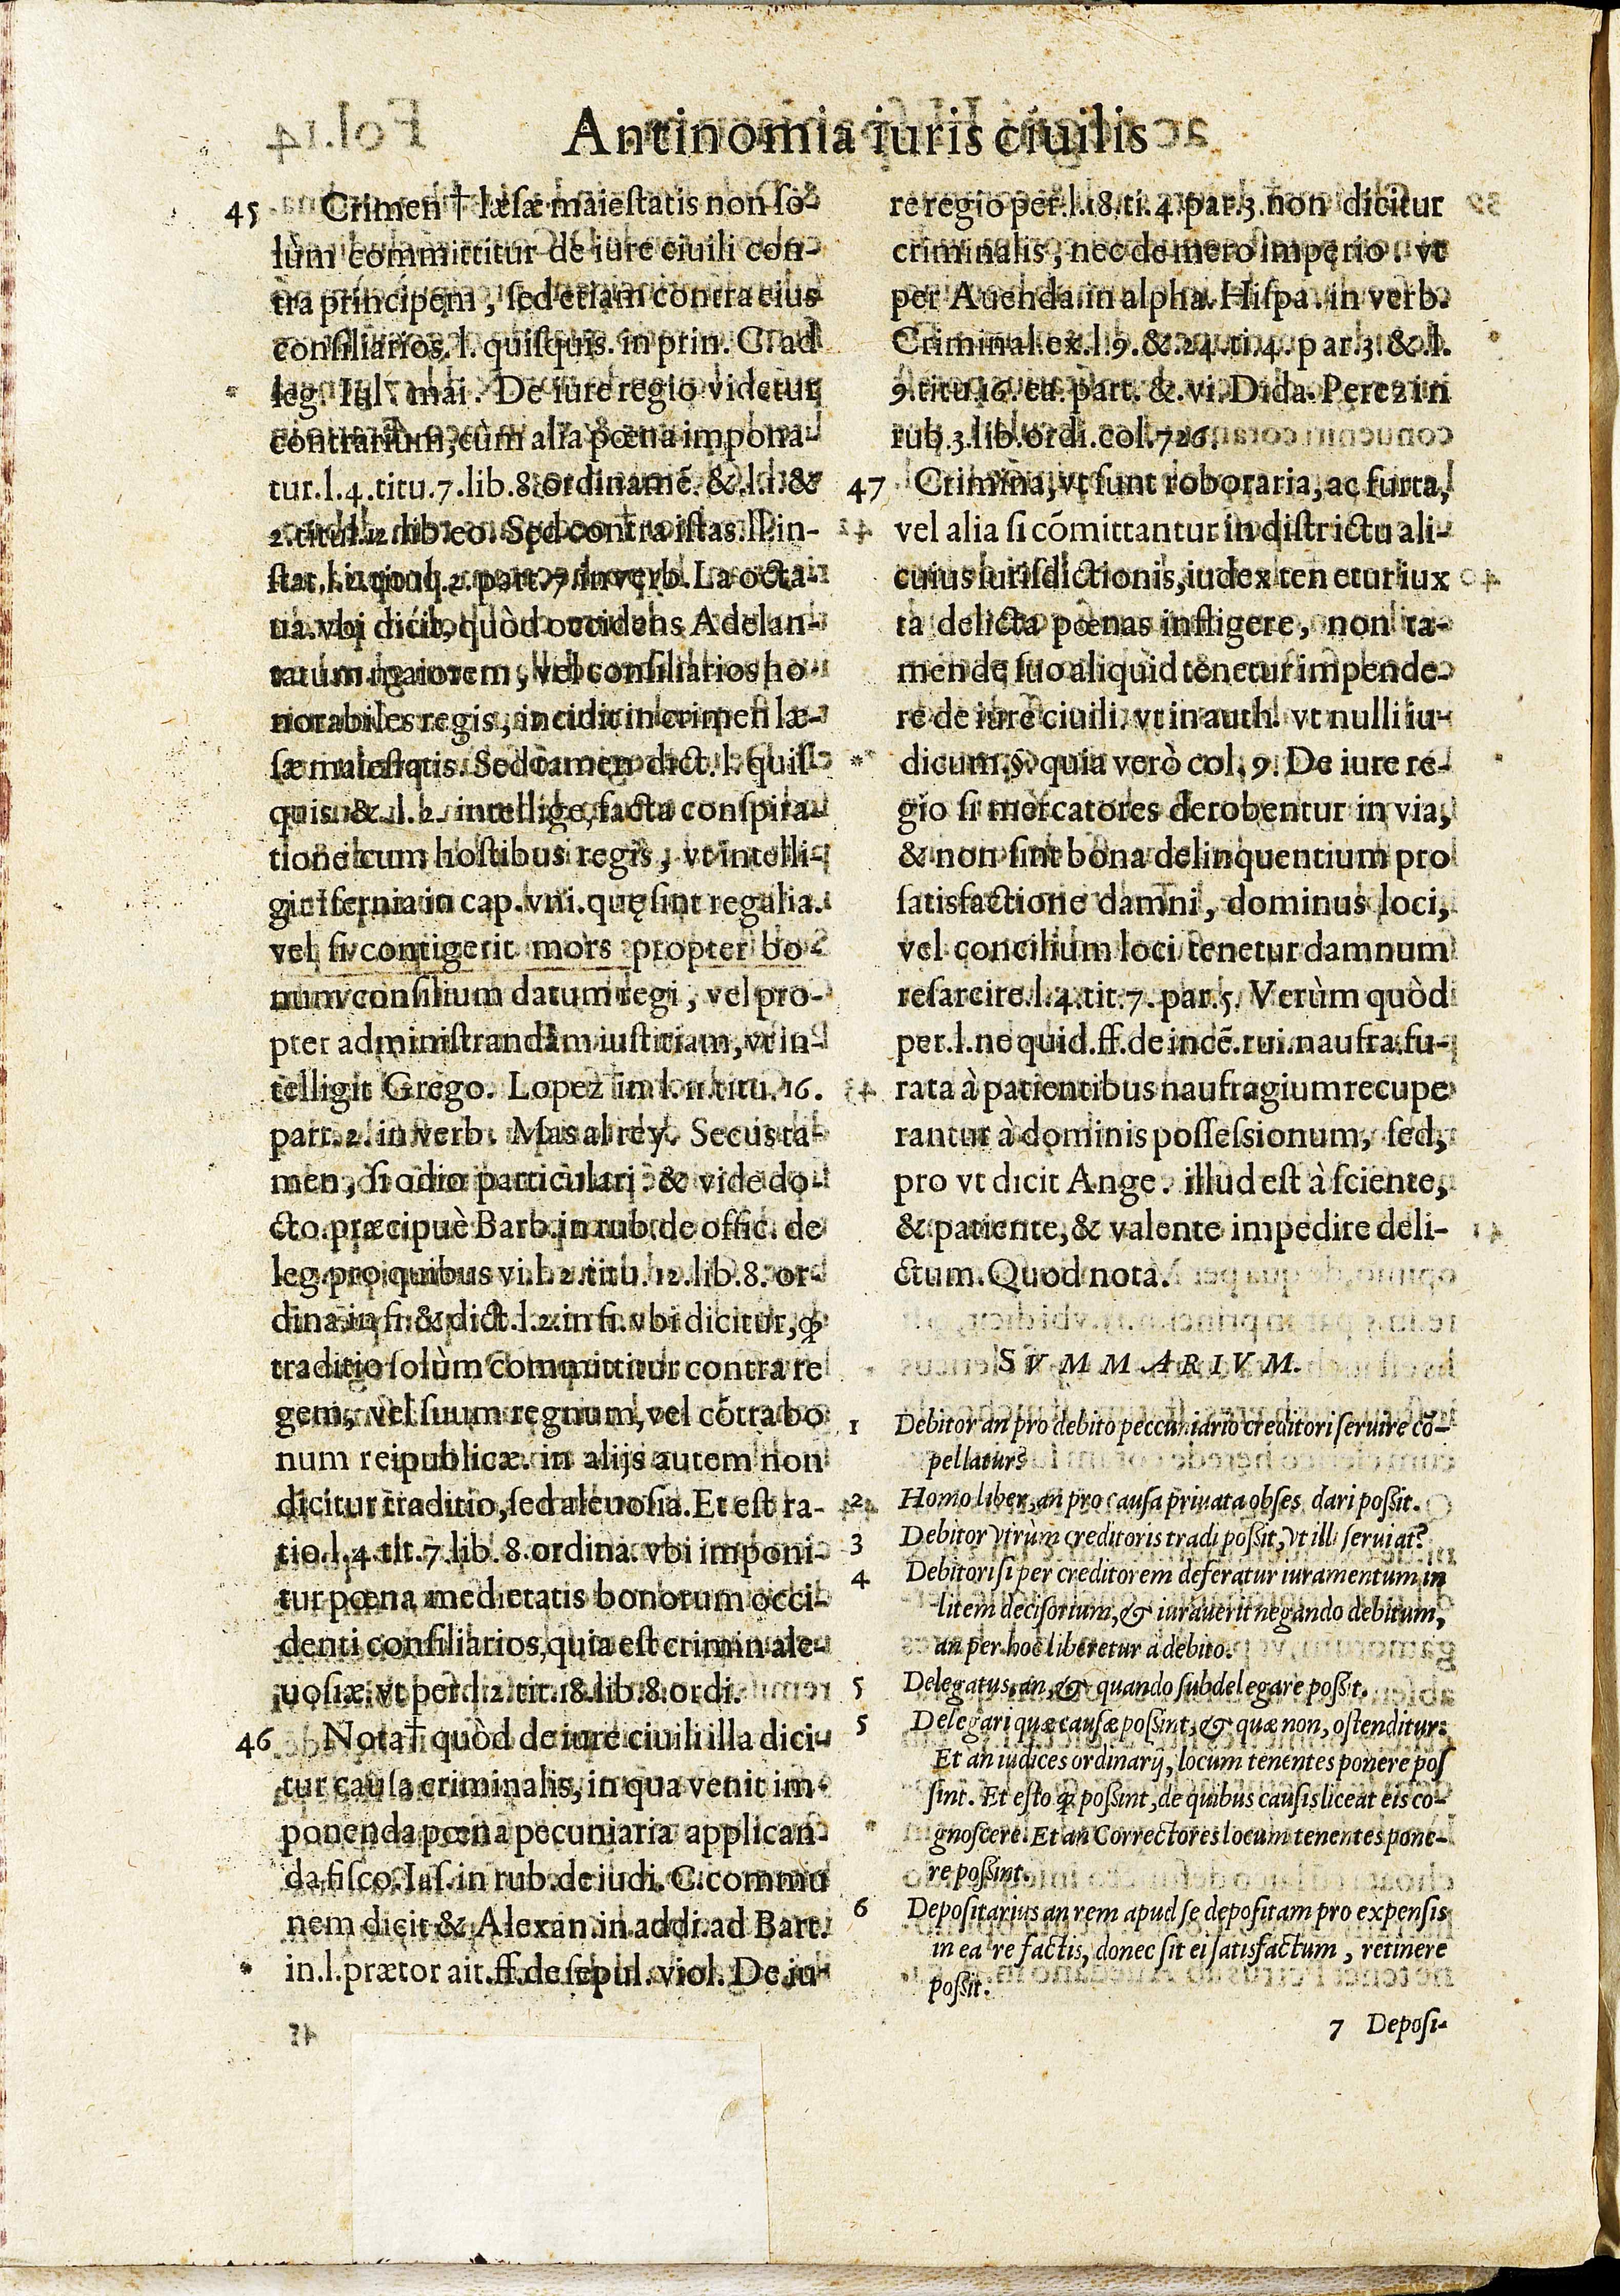 Antinomia iuris ciuilis
45 Crimen † læsæ maiestatis non so-
lùm committitur de iure ciuili con-
tra principem, sed etiam contra eius
consiliarios. l. quisquis. in prin. C. ad
leg. Iul. mai. De iure regio videtur
contrarium, cùm alia pœna impona-
tur. l. 4. titu. 7. lib. 8. ordinamẽ. & .l. 1. &
2. titul. 12. lib. eo. Sed contra istas. ll. in-
stat. l. 1. titul. 2. part. 7. in verb. La octa-
ua. vbi dicit, quòd occidens Adelan-
tatum maiorem, vel consiliarios ho
norabiles regis, incidit in crimen læ-
sæ maiestatis. Sed tamen dict. l. quis-
quis. & .l. 2. intellige, facta conspira-
tione cum hostibus regis, vt intelli-
git Isernia in cap. vni. quę sint regalia.
vel si contigerit mors propter bo-
num consilium datum regi, vel pro-
pter administrandam iustitiam, vt in-
telligit Grego. Lopez in l. 11. titu. 16.
part. 2. in verb. Mas al rey. Secus ta-
men, si odio particulari: & vide do-
cto. præcipuè Barb. in rub. de offic. de
leg. pro quibus vi. l. 2. titu. 12. lib. 8. or-
dina. in fi. & dict. l. 2. in fi. vbi dicitur, ꝙ
traditio solùm committitur contra re
gem, vel suum regnum, vel cõtra bo
num reipublicæ. in alijs autem non
dicitur traditio, sed aleuosia. Et est ra-
tio. l. 4. tit. 7. lib. 8. ordina. vbi imponi-
tur pœna medietatis bonorum occi-
denti consiliarios, quia est crimin ale-
uosiæ. vt per. l. 2. tit. 18. lib. 8. ordi.
46 Nota † quòd de iure ciuili illa dici-
tur causa criminalis, in qua venit im-
ponenda pœna pecuniaria applican-
da fisco. Ias. in rub. de iudi. C. commu
nem dicit & Alexan. in addi. ad Bart.
in. l. prætor ait. ff. de sepul. viol. De iu-
re regio per. l. 18. ti. 4. par. 3. non dicitur
criminalis, nec de mero imperio. vt
per Auenda. in alpha. Hispa. in verb.
Criminal. ex. l. 9. & .24. ti. 4. par. 3. & .l.
9. titu. 16. ea. part. & .vi. Dida. Perez in
rub. 3. lib. ordi. col. 726.
47 Crimina, vt sunt roboraria, ac furta,
vel alia si cõmittantur in districtu ali-
cuius iurisdictionis, iudex tenetur iux
ta delicta pœnas infligere, non ta-
men de suo aliquid tenetur impende-
re de iure ciuili. vt in auth. vt nulli iu-
dicum. §. quia verò col. 9. De iure re-
gio si mercatores derobentur in via,
& non sint bona delinquentium pro
satisfactione damni, dominus loci,
vel concilium loci tenetur damnum
resarcire. l. 4. tit. 7. par. 5. Verùm quòd
per. l. ne quid. ff. de incẽ. rui. naufra. fu-
rata à patientibus naufragium recupe
rantur à dominis possessionum, sed,
pro vt dicit Ange. illud est à sciente,
& patiente, & valente impedire deli-
ctum. Quod nota.
SVMMARIVM.
1 Debitor an pro debito peccuniario creditori seruire cõ-
pellatur?
2 Homo liber, an pro causa priuata obses dari possit.
3 Debitor vtrùm creditoris tradi possit, vt illi seruiat?
4 Debitori si per creditorem deferatur iuramentum in
litem decisorium, & iurauerit negando debitum,
an per hoc liberetur à debito.
5 Delegatus, an, & quando subdelegare possit.
5 Delegari quæ causæ possint, & quæ non, ostenditur:
Et an iudices ordinarij, locum tenentes ponere pos
sint. Et esto ꝙ possint, de quibus causis liceat eis co-
gnoscere. Et an Correctores locum tenentes pone-
re possint.
6 Depositarius an rem apud se depositam pro expensis
in ea re factis, donec sit ei satisfactum, retinere
possit.
7 Deposi-